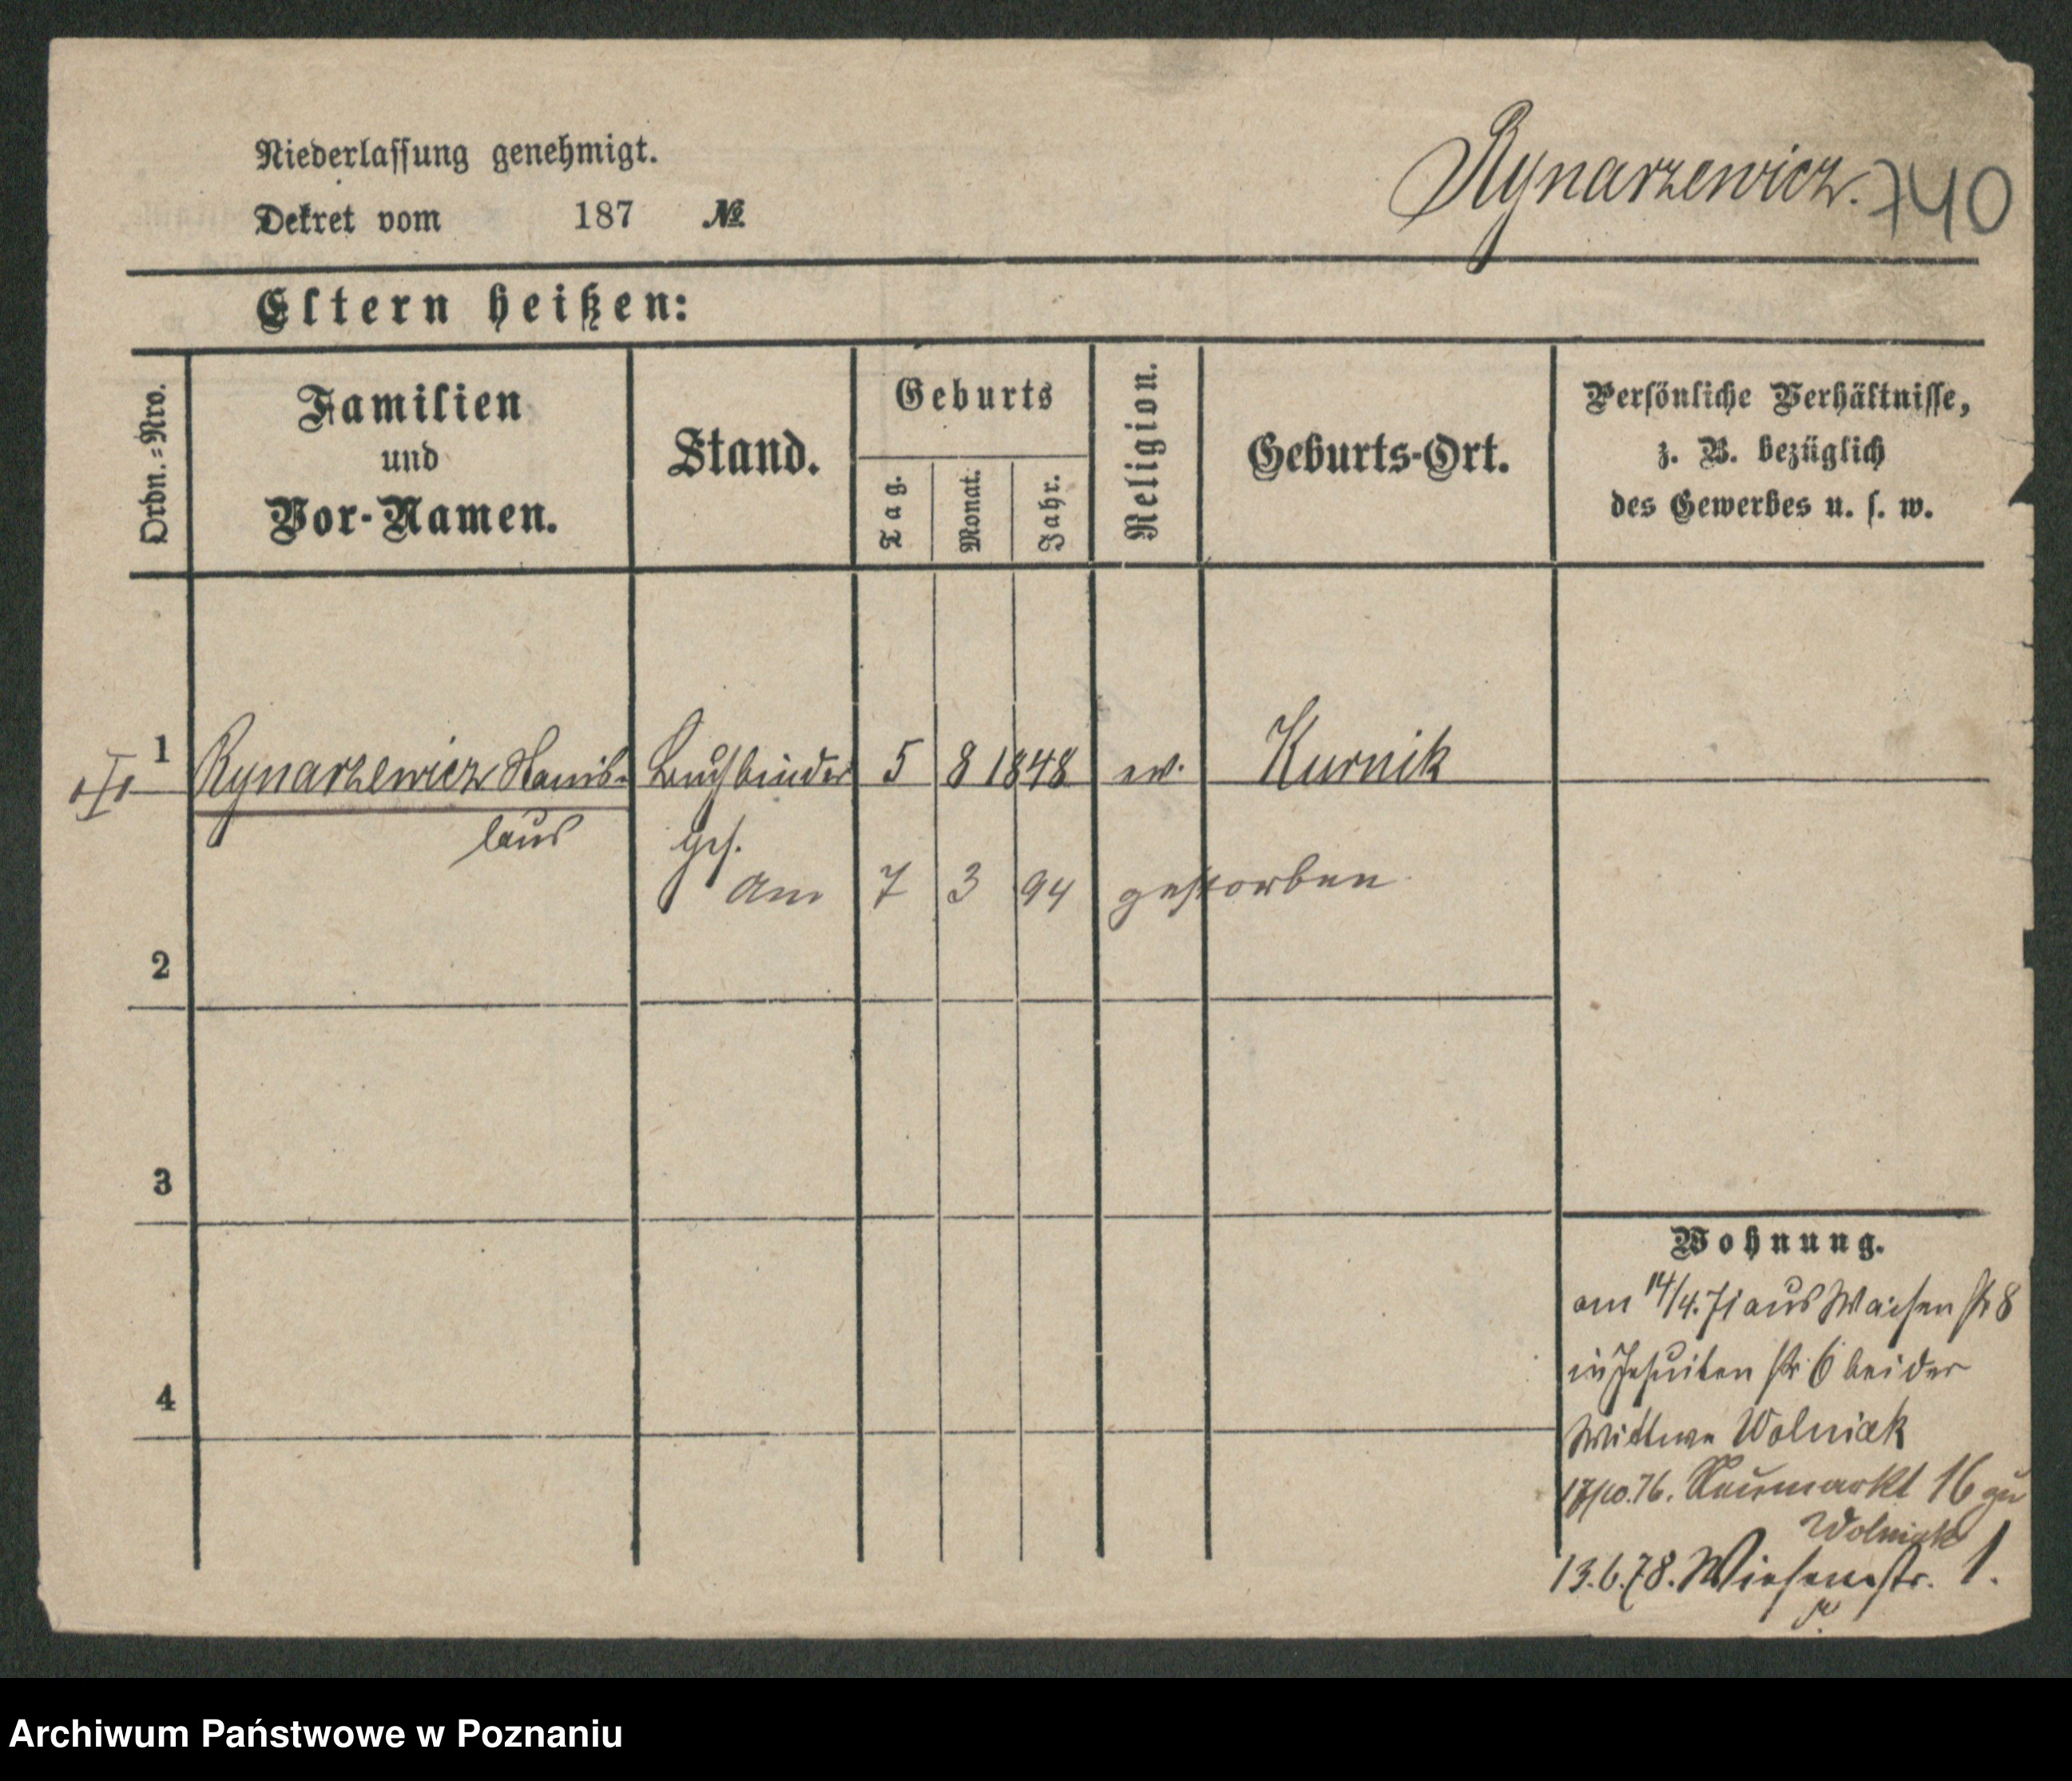 Niederlassung genehmigt.
Dekret vom 187 №
Rynarzewicz. 740
Eltern heißen:
Ordn.-Nro.
Familien
und
Vor-Namen.
Stand.
Geburts
Tag.
Monat.
Jahr.
Religion.
Geburts-Ort.
Persönliche Verhältnisse,
z. B. bezüglich
des Gewerbes u. s. w.
1 Rynarzewicz Stanis- Buchbinder 5 8 1848 Kurnik
laus
am 7 3 94 gestorben
2
3
4
Wohnung.
am 14/4.71 aus Waisen str 8
in Jesuiten str 6 bei der
Wittwe Wolniak
/10.76. Neumarkt 16 zu
Wolniak
13.6.78. Wiesenstr. 1.
Archiwum Państwowe w Poznaniu